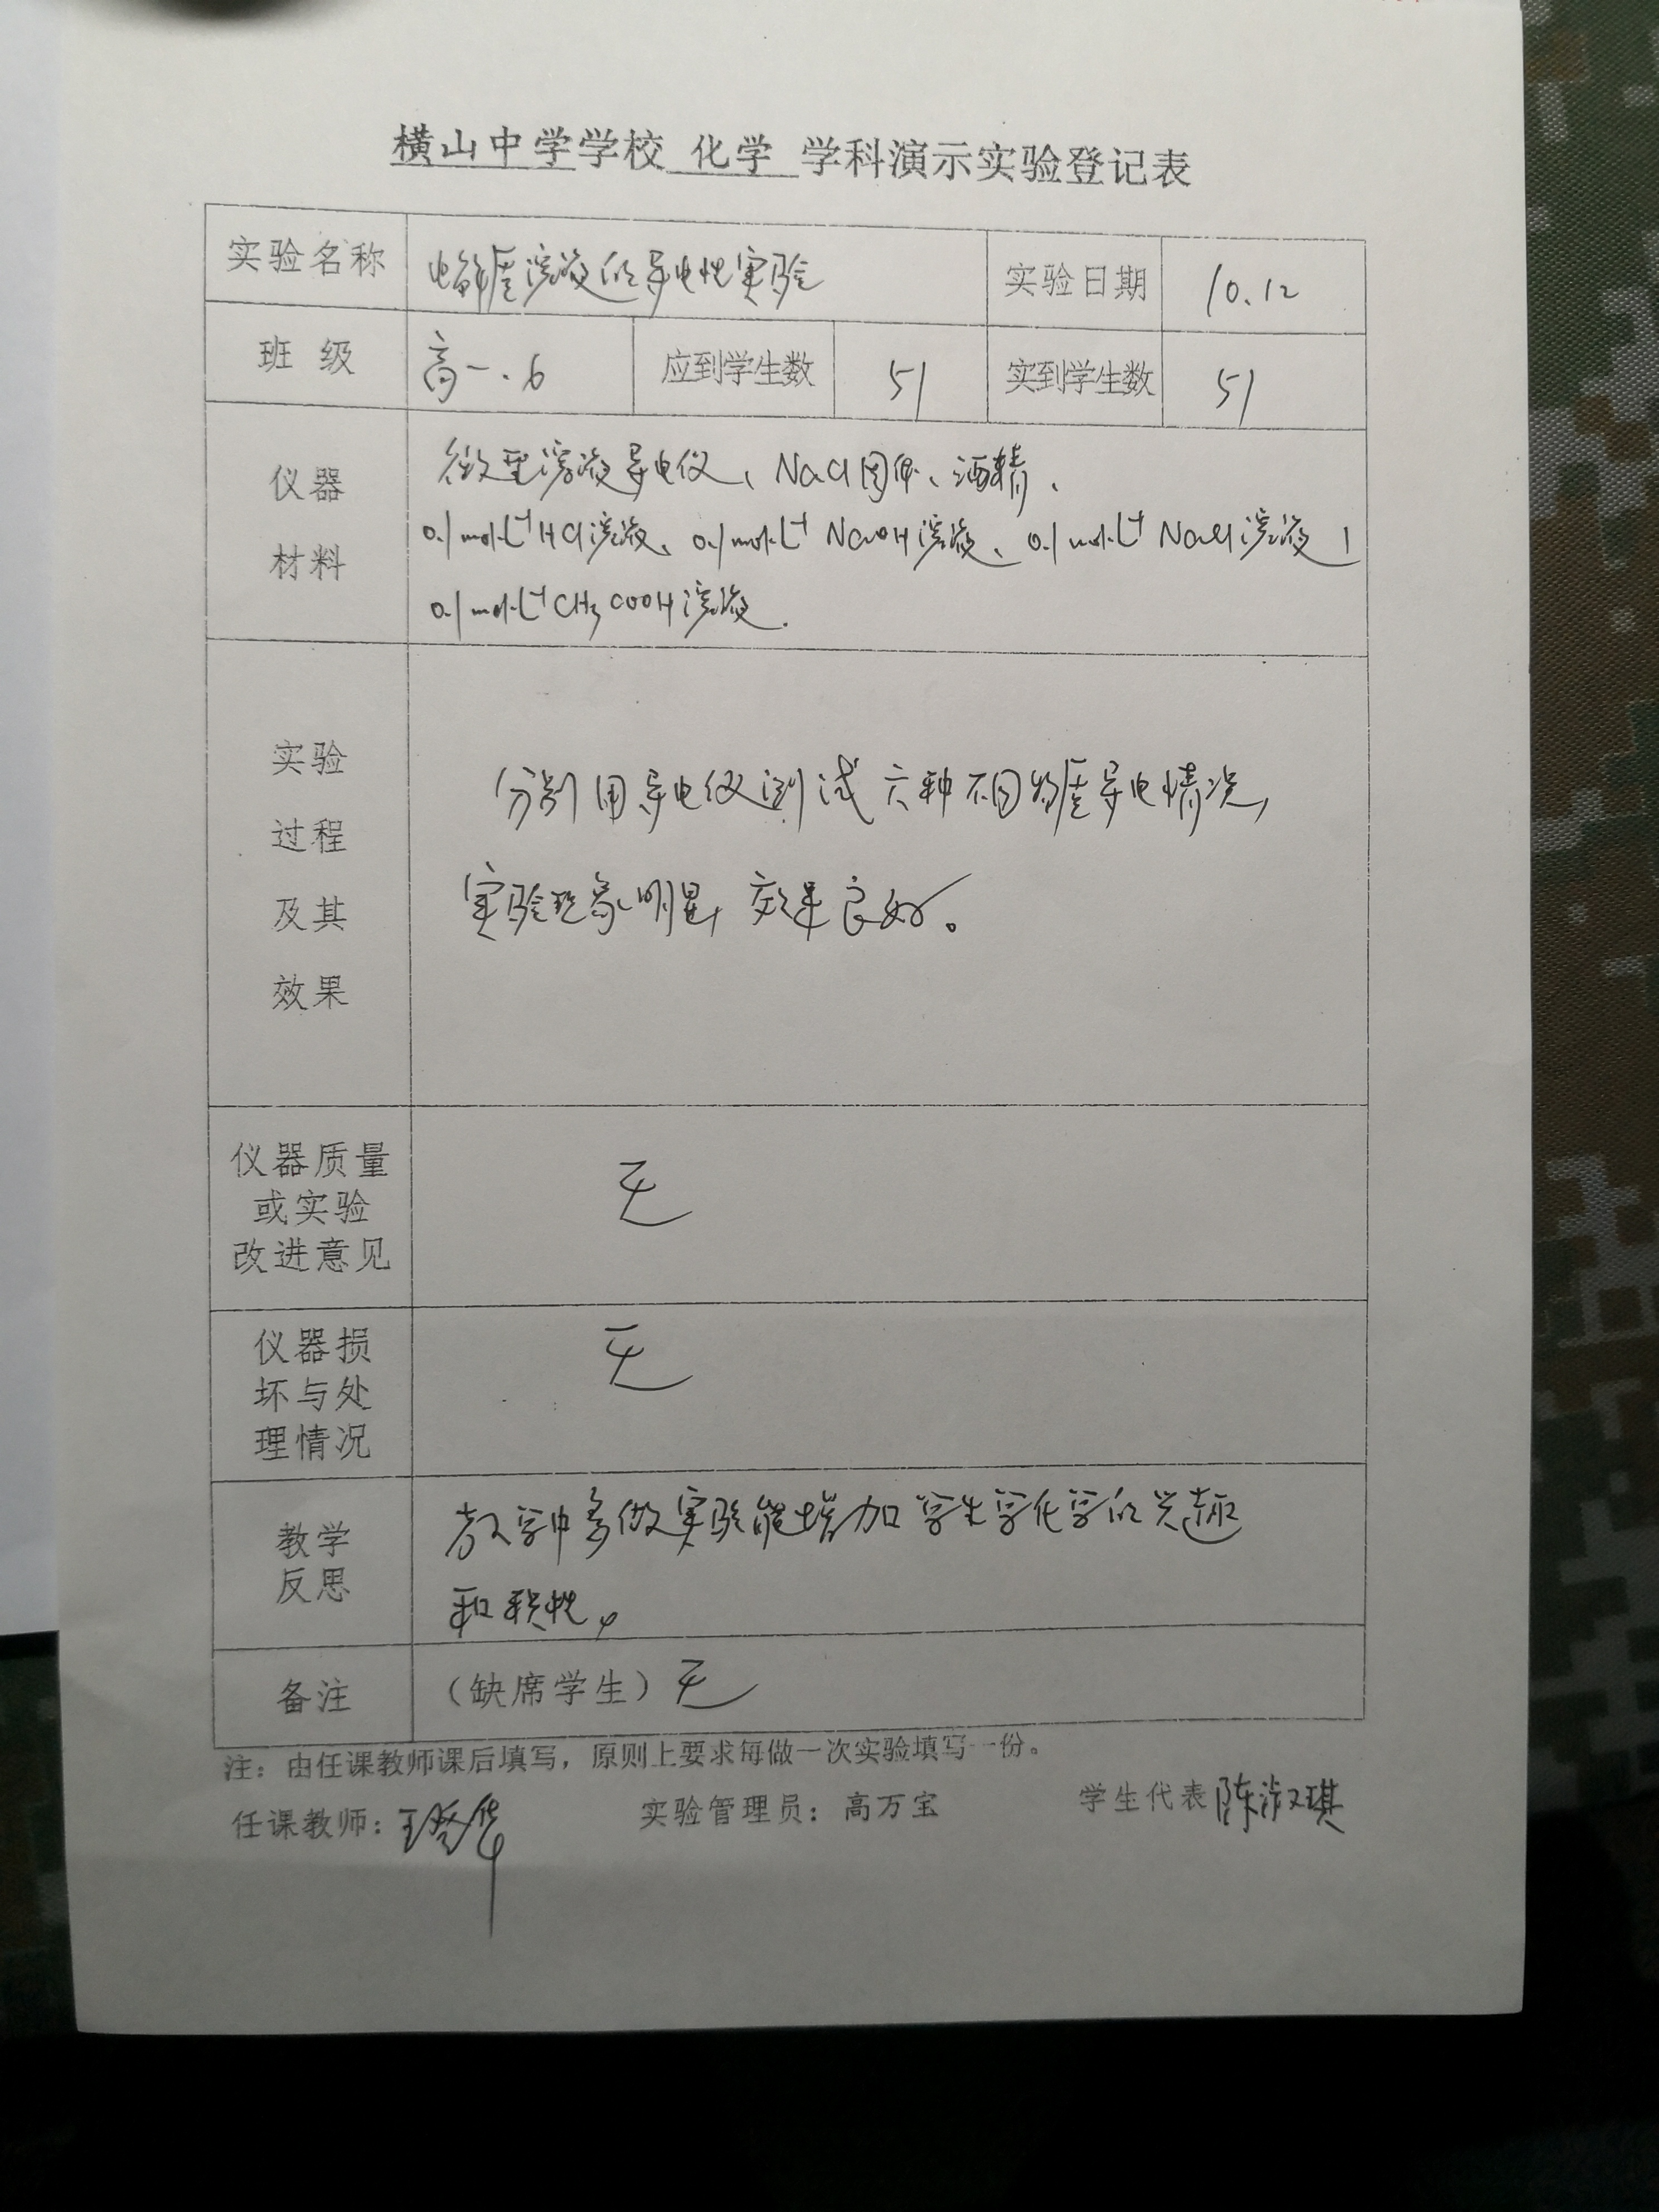 横山中学学校 化学 学科演示实验登记表
实验名称 电解质溶液的导电性实验 实验日期 10.12
班 级 高一.6 应到学生数 51 实到学生数 51
仪器
材料
微型溶液导电仪、NaCl固体、酒精、
0.1mol·L⁻¹HCl溶液、0.1mol·L⁻¹ NaOH溶液、0.1mol·L⁻¹ NaCl溶液、
0.1mol·L⁻¹CH₃COOH溶液.
实验
过程
及其
效果
分别用导电仪测试六种不同物质导电情况,
实验现象明显,效果良好。
仪器质量
或实验
改进意见
无
仪器损
坏与处
理情况
无
教学
反思
教学中多做实验能增加学生学化学的兴趣
和积性。
备注 (缺席学生) 无
注：由任课教师课后填写，原则上要求每做一次实验填写一份。
任课教师：王 华 实验管理员：高万宝 学生代表 陈淑琪